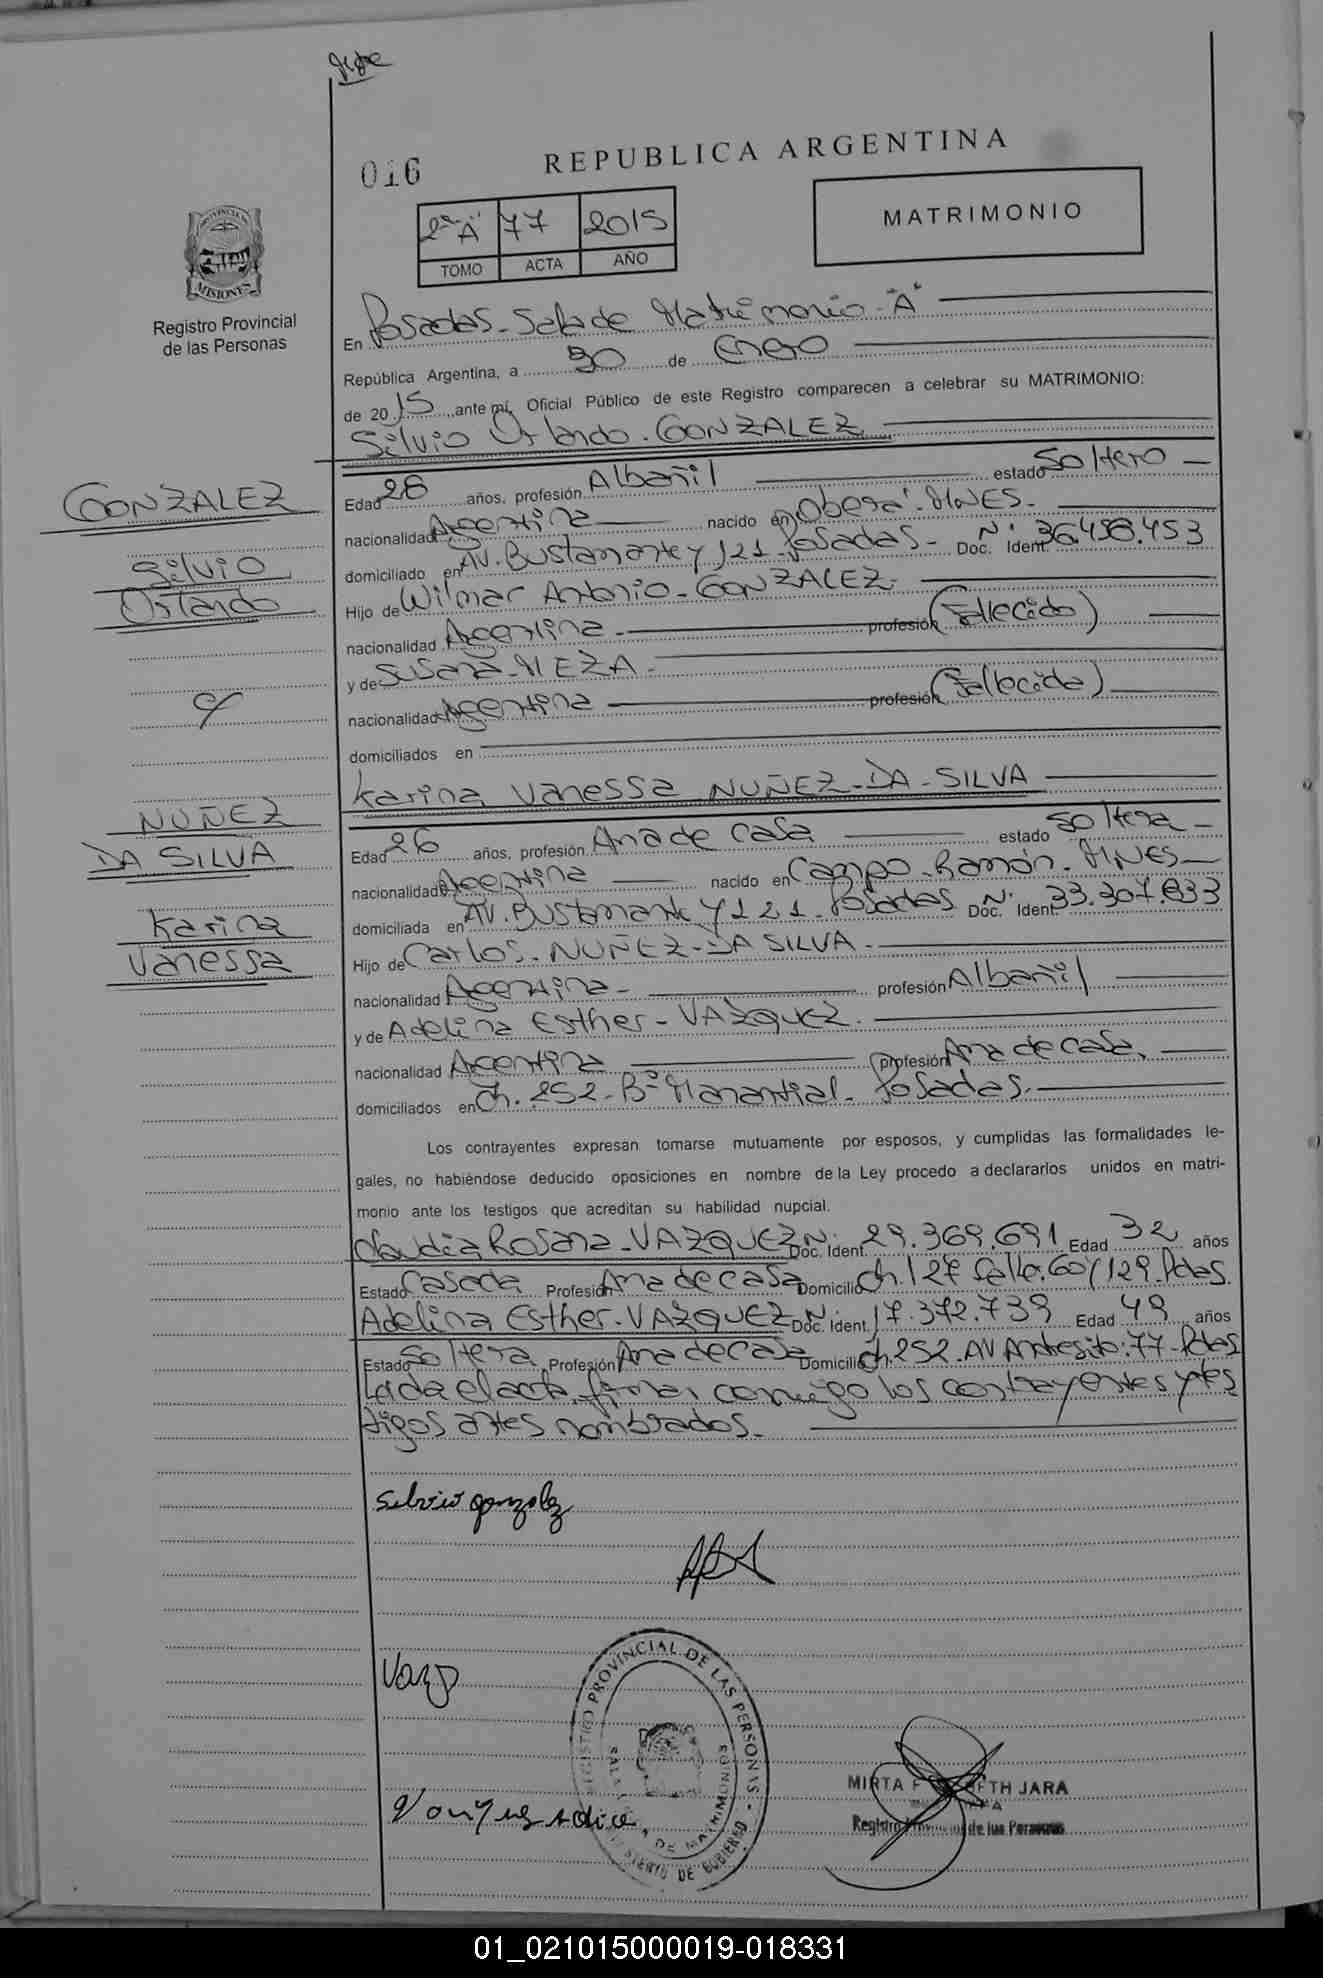 016
REPUBLICA ARGENTINA
2º "A" 77 2015
TOMO ACTA AÑO
MATRIMONIO
PROVINCIA DE
MISIONES
Registro Provincial
de las Personas
En Posadas - Sala de Matrimonio - "A"
República Argentina, a 30 de Enero
de 2015 ante mí, Oficial Público de este Registro comparecen a celebrar su MATRIMONIO:
Silvio Orlando. GONZALEZ
GONZALEZ
Silvio
Orlando
Edad 28 años, profesión Albañil estado Soltero
nacionalidad Argentina nacido en Oberá. MNES.
domiciliado en AV. Bustamante y 121. Posadas - Doc. Ident. Nº 36.458.453
Hijo de Wilmar Antonio - GONZALEZ.
nacionalidad Argentina - profesión (Fallecido)
y de Susana - MEZA -
nacionalidad Argentina profesión (Fallecida)
domiciliados en
Karina Vanessa NUÑEZ - DA - SILVA
NUÑEZ
DA SILVA
Karina
Vanessa
Edad 26 años, profesión Ama de casa estado Soltera -
nacionalidad Argentina nacido en Campo Ramón. MNES
domiciliada en AV. Bustamante y 121. Posadas Doc. Ident. Nº 33.307.833
Hijo de Carlos - NUÑEZ - DA SILVA -
nacionalidad Argentina - profesión Albañil
y de Adelina Esther - VAZQUEZ.
nacionalidad Argentina profesión Ama de casa.
domiciliados en Ch. 252 - Bº Manantial - Posadas.
Los contrayentes expresan tomarse mutuamente por esposos, y cumplidas las formalidades le-
gales, no habiéndose deducido oposiciones en nombre de la Ley procedo a declararlos unidos en matri-
monio ante los testigos que acreditan su habilidad nupcial.
Claudia Rosana - VAZQUEZ Doc. Ident. Nº 29.369.691 Edad 32 años
Estado Casada Profesión Ama de casa Domicilio Ch. 127 Calle. 60 y 129. Pdas.
Adelina Esther - VAZQUEZ Doc. Ident. Nº 17.372.739 Edad 49 años
Estado Soltera Profesión Ama de casa Domicilio Ch. 252. AV Andresito: 77 - Pdas
Leída el acta, firman conmigo los contrayentes y tes
tigos antes nombrados.
Silvio gonzalez
REGISTRO PROVINCIAL DE LAS PERSONAS
SALA DE MATRIMONIOS
MINISTERIO DE GOBIERNO
MIRTA JARA
Registro Provincial de las Personas
01_021015000019-018331